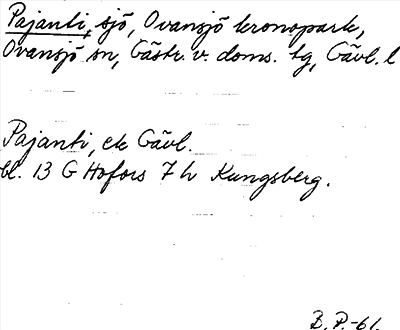 Pajanti, sjö, Ovansjö kronopark,
Ovansjö sn, Gästr. v. doms. tg, Gävl. l
Pajanti, ek Gävl.
bl. 13 G Hofors 7 h Kungsberg.
B. P. -61.